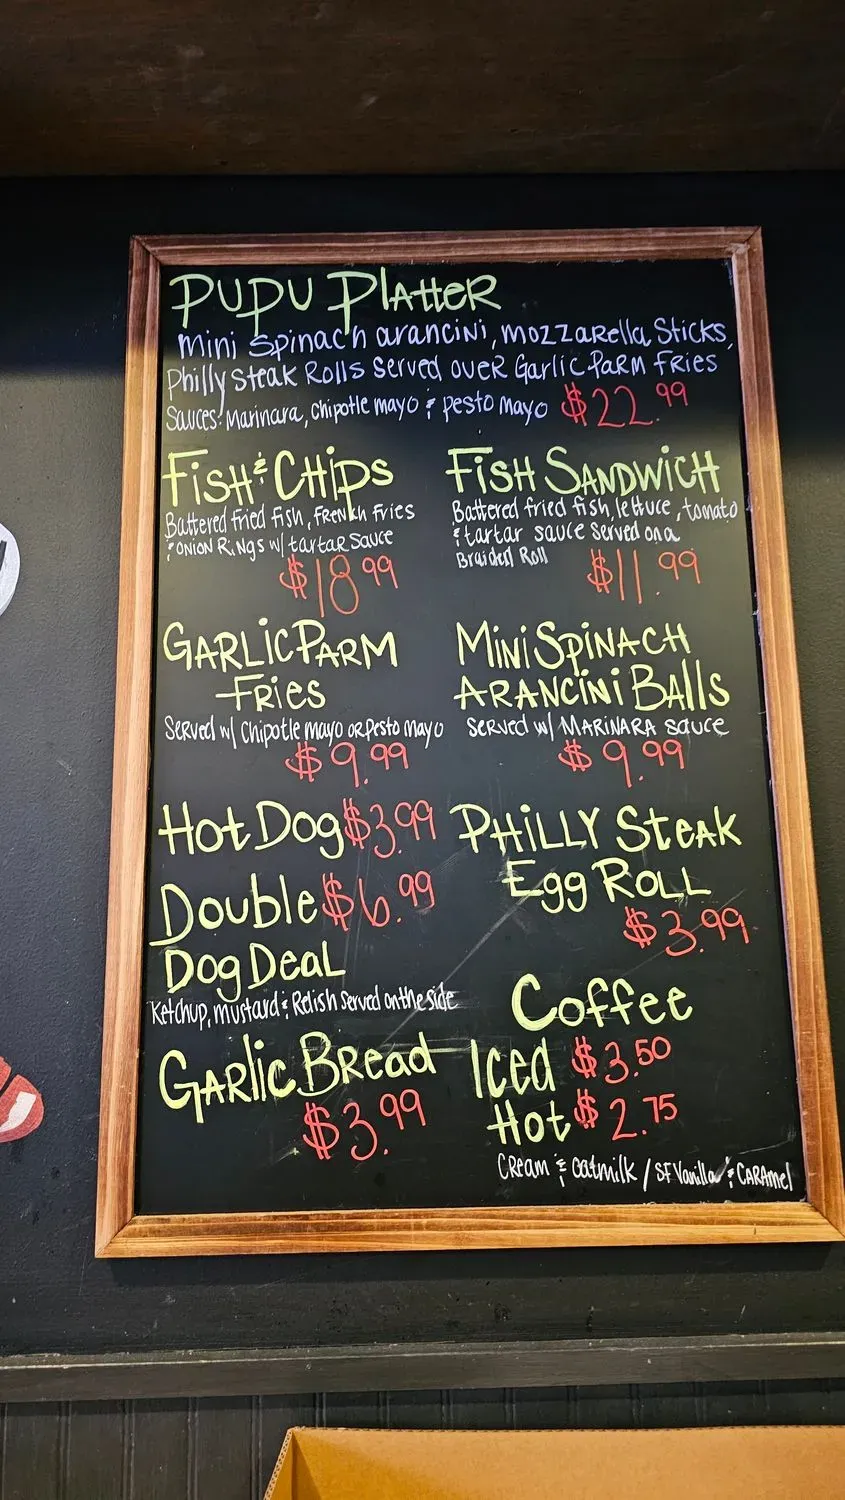 PUPU PlAtteR
mini Spinach arancini, mozzarella Sticks,
Philly Steak Rolls Served over Garlic Parm Fries
Sauces: Marinara, chipotle mayo & pesto mayo $22.99
Fish & Chips
Battered fried fish, French fries
& Onion Rings w/ tartar Sauce
$18.99
Fish Sandwich
Battered fried fish, lettuce, tomato
& tartar sauce served on a
Braided Roll
$11.99
Garlic Parm
Fries
Served w/ Chipotle mayo or pesto mayo
$9.99
Mini Spinach
Arancini Balls
served w/ Marinara sauce
$9.99
Hot Dog $3.99
Double $6.99
Dog Deal
Ketchup, mustard & Relish served on the side
Garlic Bread
$3.99
Philly Steak
Egg Roll
$3.99
Coffee
Iced $3.50
Hot $2.75
Cream & oatmilk / SF Vanilla & Caramel